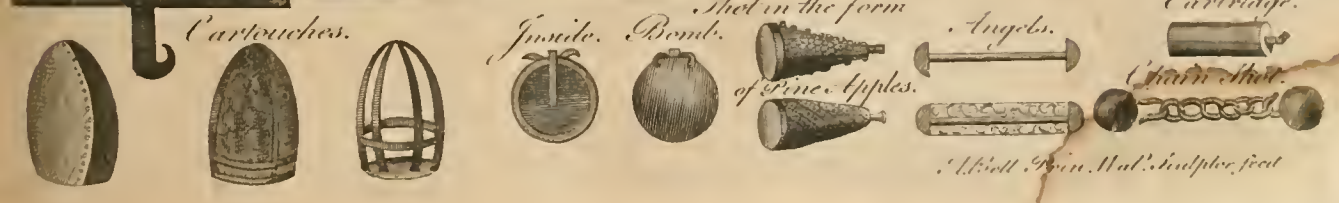 Cartouches.
Inside.
Bomb.
Shot in the form
of Pine Apples.
Angels.
Cartridge.
Chain Shot.
A. Bell Prin. Wal. Sculptor fecit